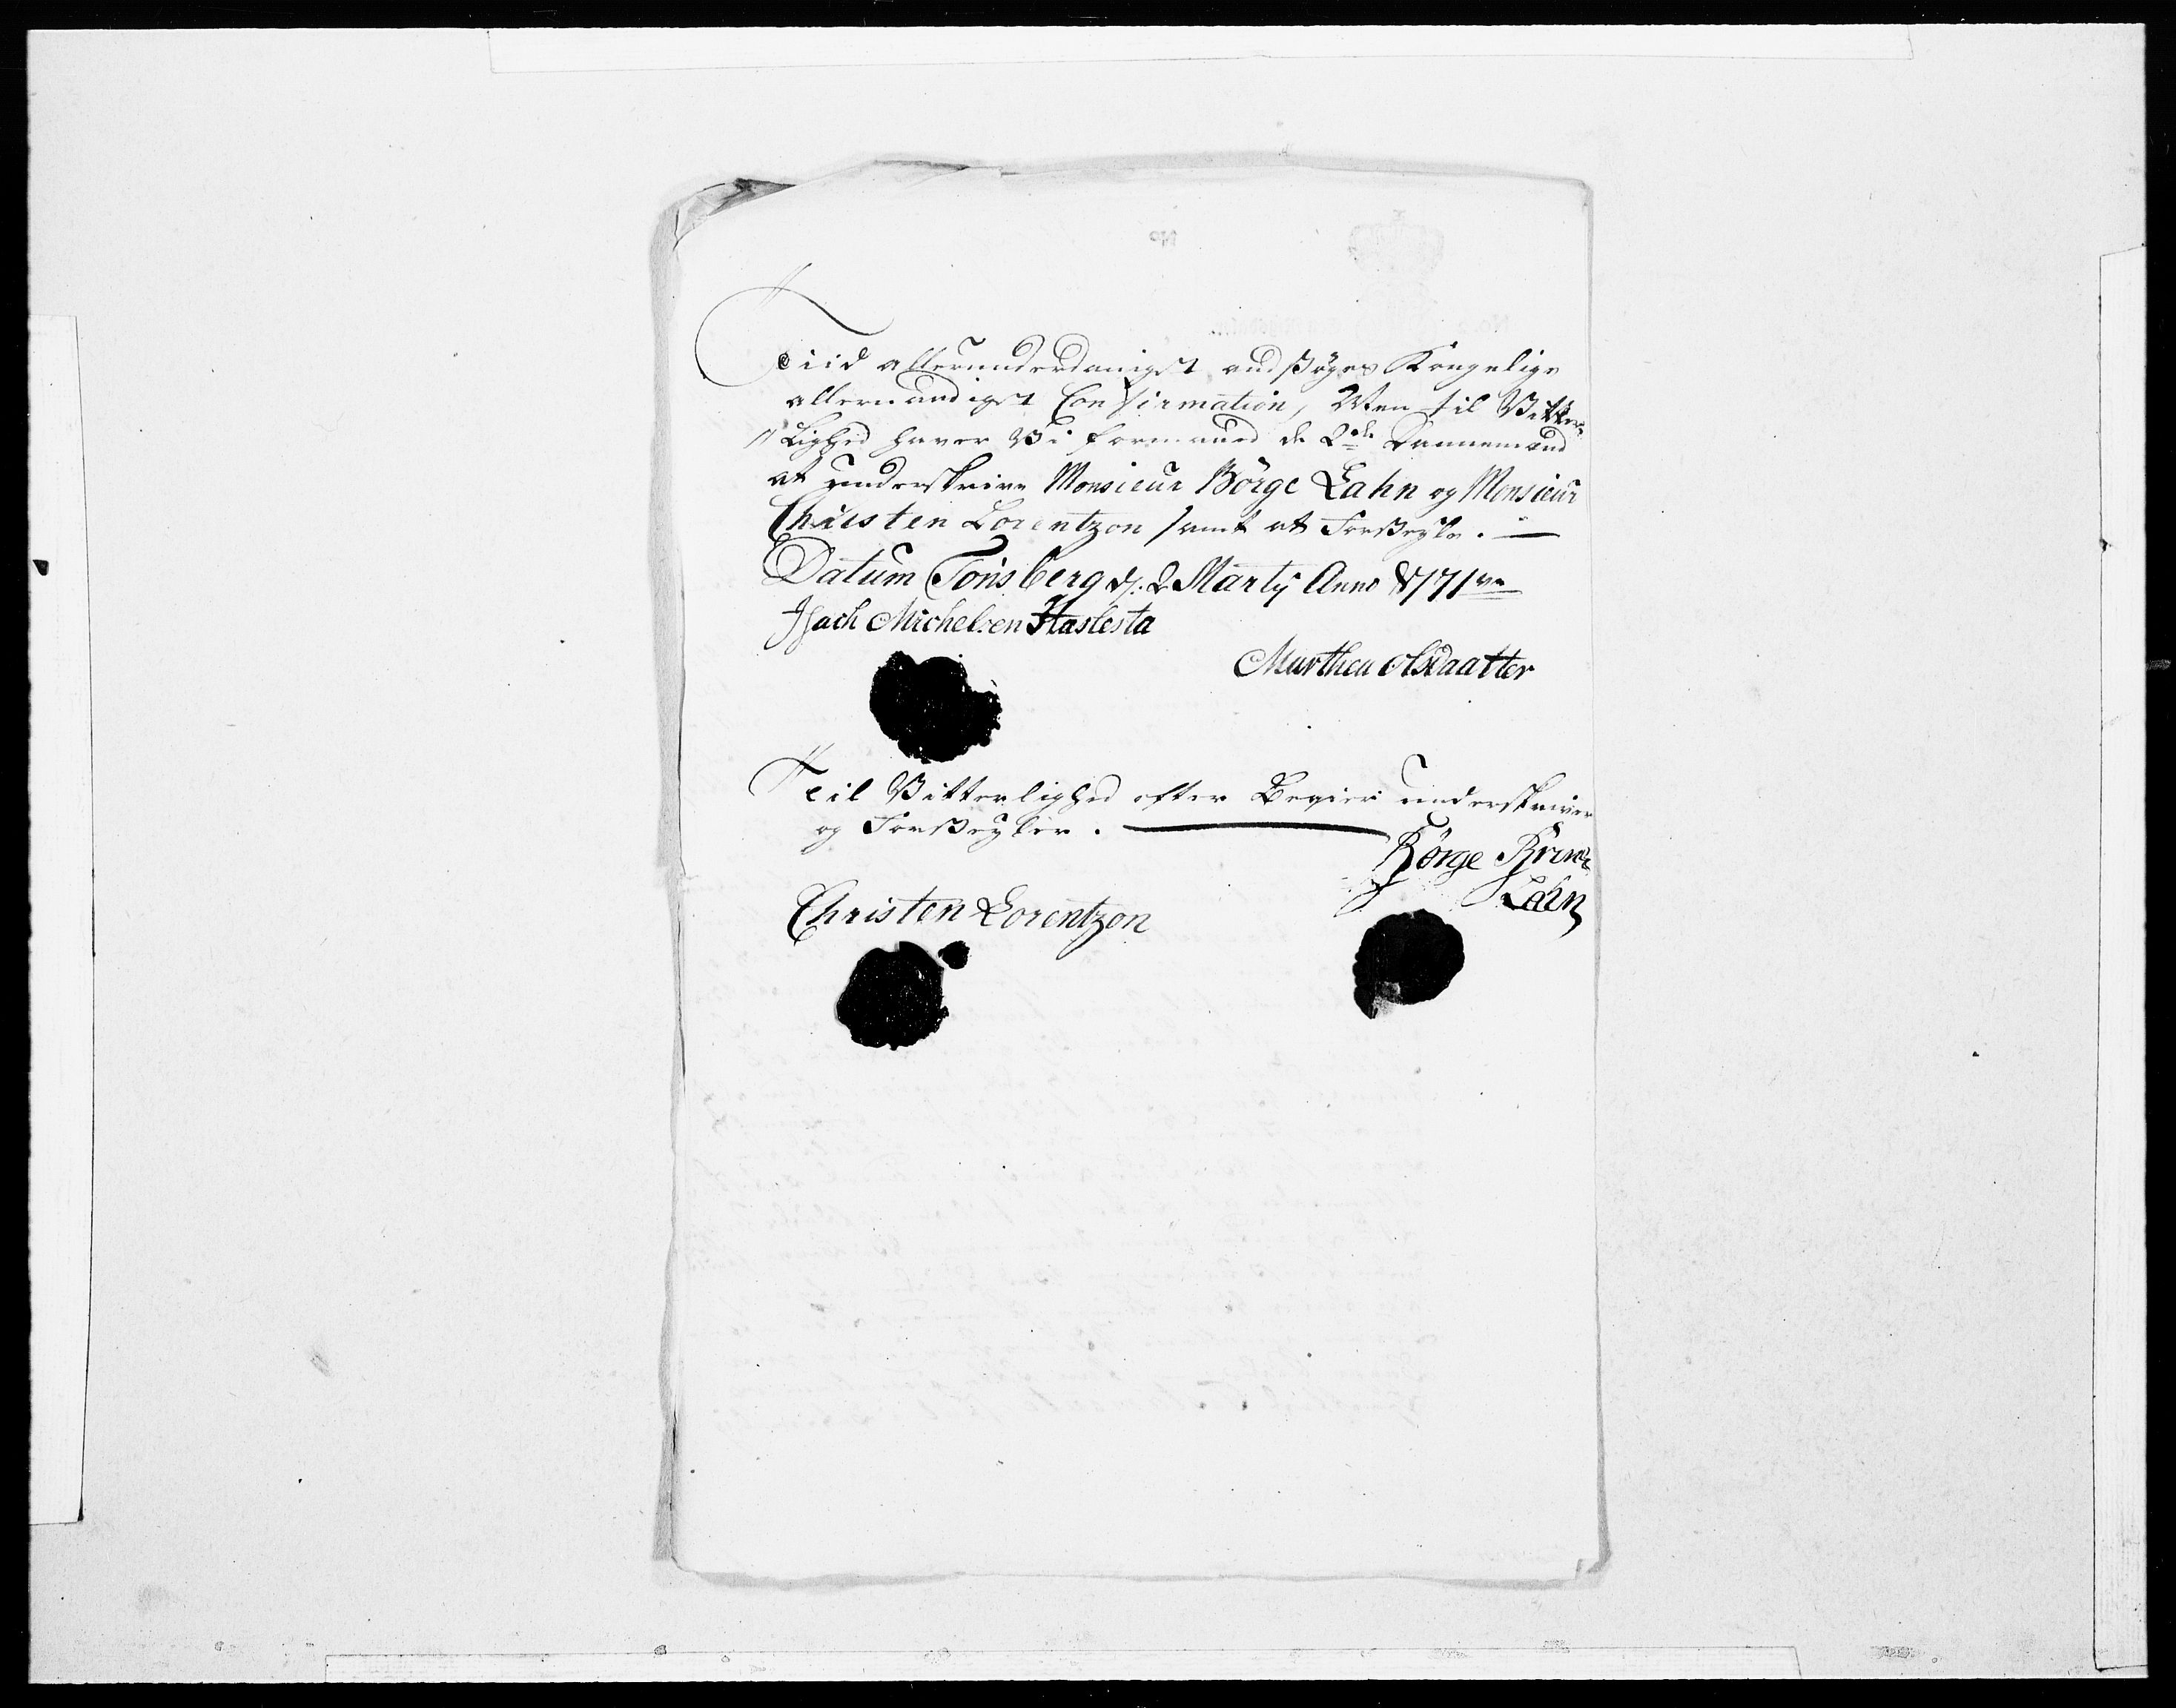 Tiid allerunderdanigst andsøges Kongelige
allernaadigst Confirmation, Men til Vitter¬
"Lighed haver Vi formaaed de 2de Dannemænd
at underskrive Monsieur Börge Lahn og Monsieur
Christen Lorentzon samt at Forsegle. —
Datum Tönsberg d. 2 Martij Anno
Isach Michelsen Haslesta
Marthea olsdaatter
Til Vitterlighed efter Begier underskriver
og Forseyler.
Börge
Lahn
Christen Lorentzon